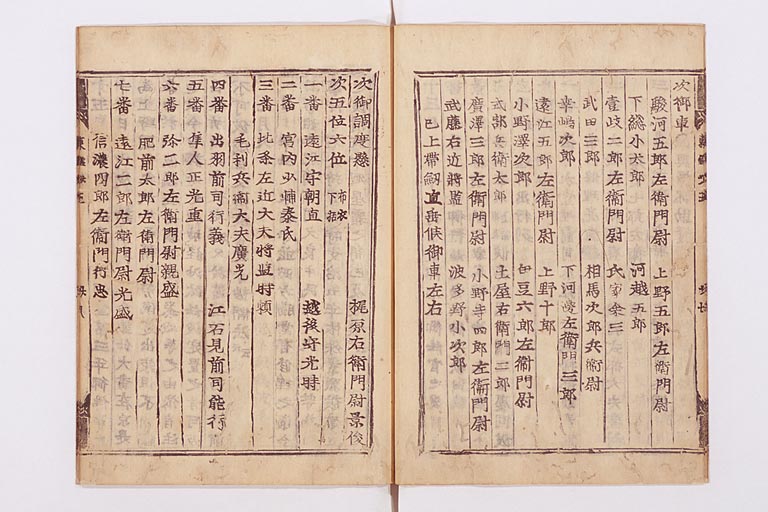 次御車
駿河五郎左衛門尉 上野五郎左衛門尉
下総小太郎 河越五郎
壹岐二郎左衛門尉 氏家余三
武田三郎 相馬次郎兵衛尉
次郎 下河邊左衛門三郎
遠江五郎左衛門尉 上野十郎
小野澤次郎 伊豆六郎左衛門尉
式部兵衛太郎 土屋右衛門三郎
廣澤三郎左衛門尉 小野寺四郎左衛門尉
武藤右近將監 波多野小次郎
已上帶劔直垂候御車左右
次御調度懸 梶原右衛門尉景俊
次五位六位 布衣下括
一番 遠江守朝直 越後守光時
二番 宮内少輔泰氏
三番 北条左近大夫將監時頼
毛利兵衛大夫廣光
四番 出羽前司行義 江石見前司能行
五番 隼人正光重
六番 弥二郎左衛門尉親盛
肥前太郎左衛門尉
七番 遠江二郎左衛門尉光盛
信濃四郎左衛門行忠